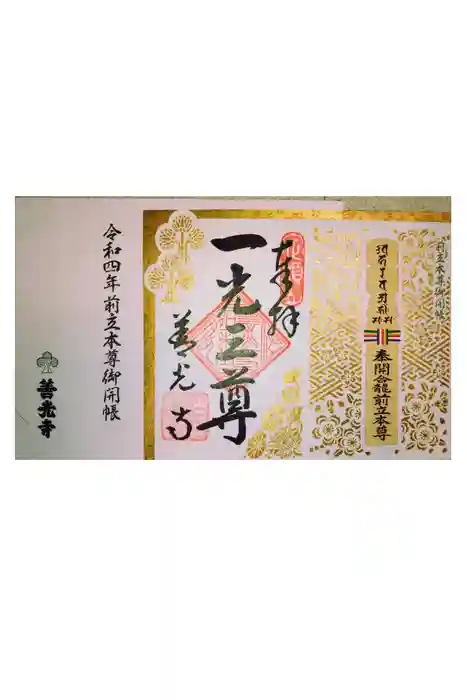 前立本尊御開帳
奉開龕龍前立本尊
奉拝
一光三尊
善光寺
令和四年前立本尊御開帳
善光寺